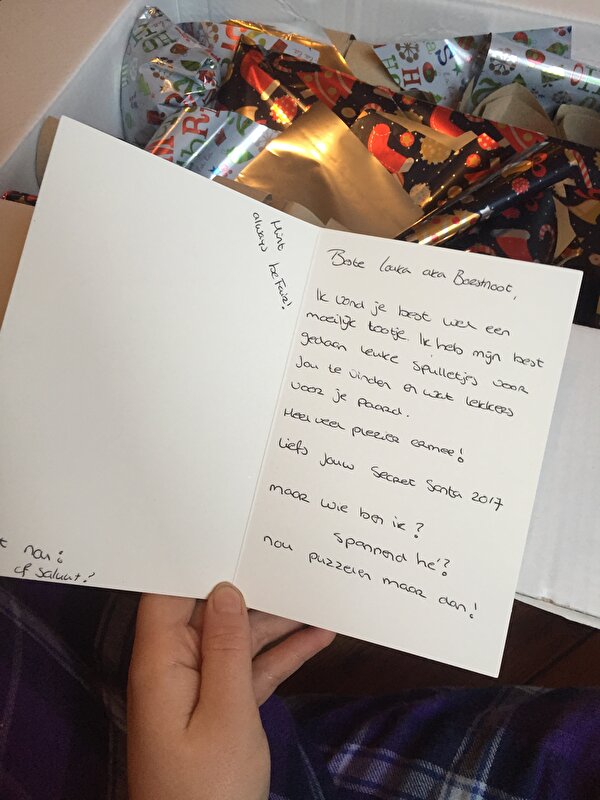 Hint
always be Fair!
Beste Louka aka Beestnoot,
Ik vond je best wel een
moeilijk tootje. Ik heb mijn best
gedaan leuke spulletjes voor
jou te vinden en wat lekkers
voor je paard.
Heel veel plezier ermee!
Liefs jouw Secret Santa 2017
maar wie ben ik?
spannend hè?
nou puzzelen maar dan!
nou?
of Saluut?
HO
HO